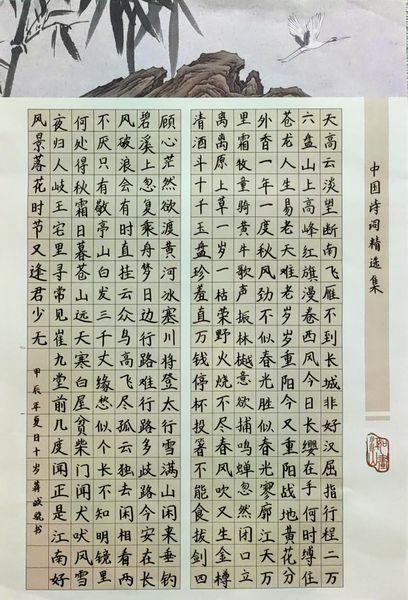 中国诗词精选集
天高云淡望断南飞雁不到长城非好汉屈指行程二万
六盘山上高峰红旗漫卷西风今日长缨在手何时缚住
苍龙人生易老天难老岁岁重阳今又重阳战地黄花分
外香一年一度秋风劲不似春光胜似春光寥廓江天万
里霜牧童骑黄牛歌声振林樾意欲捕鸣蝉忽然闭口立
离离原上草一岁一枯荣野火烧不尽春风吹又生金樽
清酒斗十千玉盘珍羞直万钱停杯投箸不能食拔剑四
顾心茫然欲渡黄河冰塞川将登太行雪满山闲来垂钓
碧溪上忽复乘舟梦日边行路难行路多歧路今安在长
风破浪会有时直挂云众鸟高飞尽孤云独去闲相看两
不厌只有敬亭山白发三千丈缘愁似个长不知明镜里
何处得秋霜日暮苍山远天寒白屋贫柴门闻犬吠风雪
夜归人岐王宅里寻常见崔九堂前几度闻正是江南好
风景落花时节又逢君少无
甲辰年夏日十岁蒋书